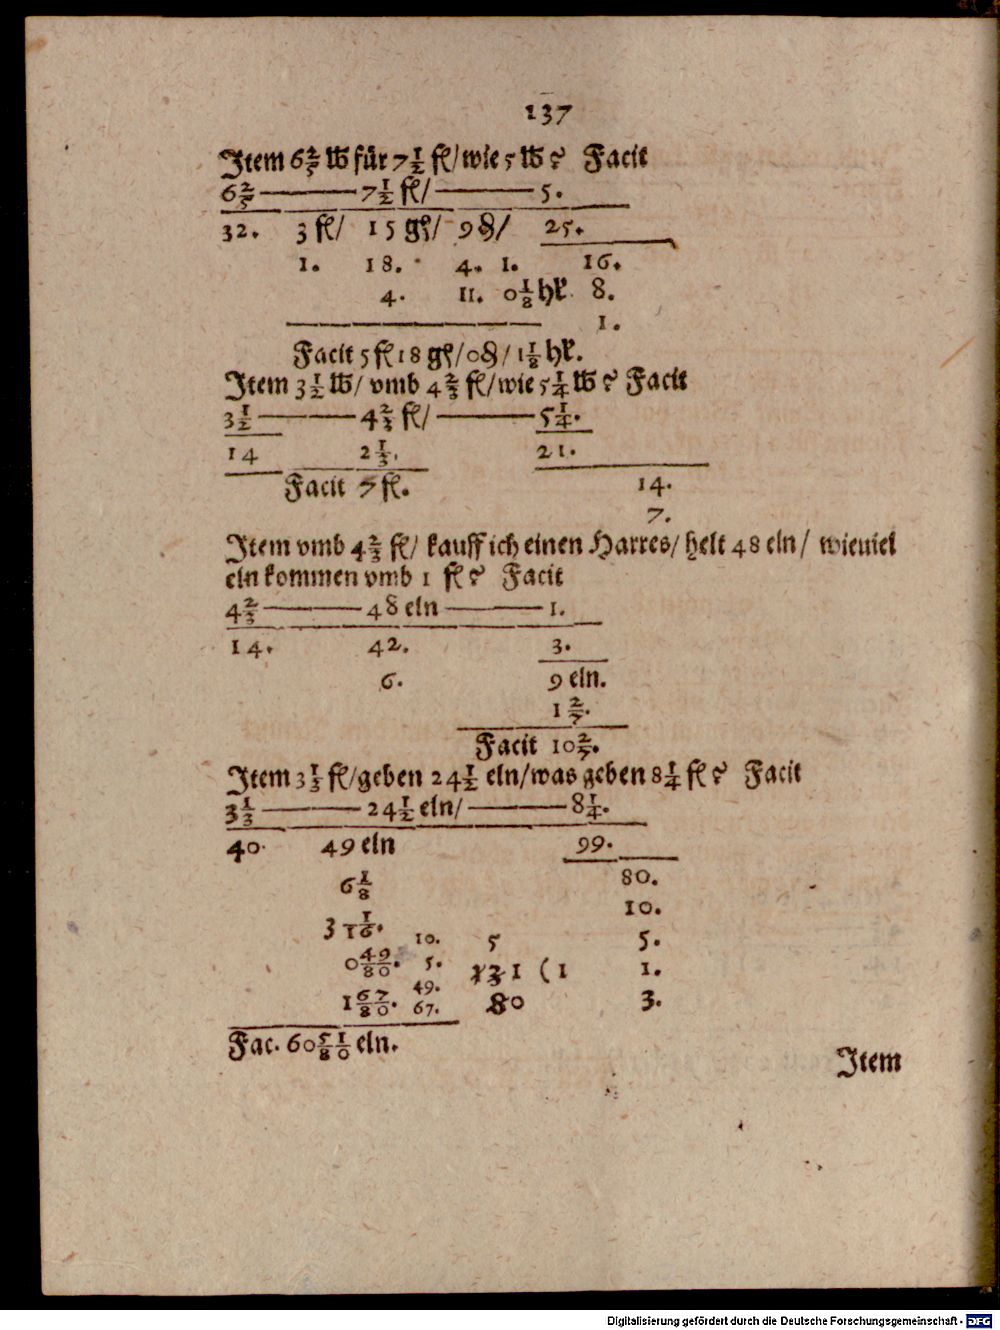 137
Item 6 2/5 ℔ für 7 1/2 fl/ wie 5 ℔? Facit
6 2/5 —— 7 1/2 fl/ —— 5.
32. 3 fl/ 15 gl/ 9 ₰/ 25.
1. 18. 4. 1. 16.
4. 11. 0 1/8 hl. 8.
1.
Facit 5 fl 18 gl/ 0 ₰/ 1 1/8 hl.
Item 3 1/2 ℔/ vmb 4 2/3 fl/ wie 5 1/4 ℔? Facit
3 1/2 —— 4 2/3 fl/ —— 5 1/4.
14 2 1/3. 21.
Facit 7 fl. 14.
7.
Item vmb 4 2/3 fl/ kauff ich einen Harres/ helt 48 eln/ wieuiel
eln kommen vmb 1 fl? Facit
4 2/3 —— 48 eln —— 1.
14. 42. 3.
6. 9 eln.
1 2/7.
Facit 10 2/7.
Item 3 1/3 fl/ geben 24 1/2 eln/ was geben 8 1/4 fl? Facit
3 1/3 —— 24 1/2 eln/ —— 8 1/4.
40. 49 eln 99.
6 1/8 80.
10.
3 1/16. 10. 5 5.
0 49/80. 5. 131 (1 1.
49.
1 67/80. 67. 80 3.
Fac. 60 51/80 eln.
Item
Digitalisierung gefördert durch die Deutsche Forschungsgemeinschaft - DFG